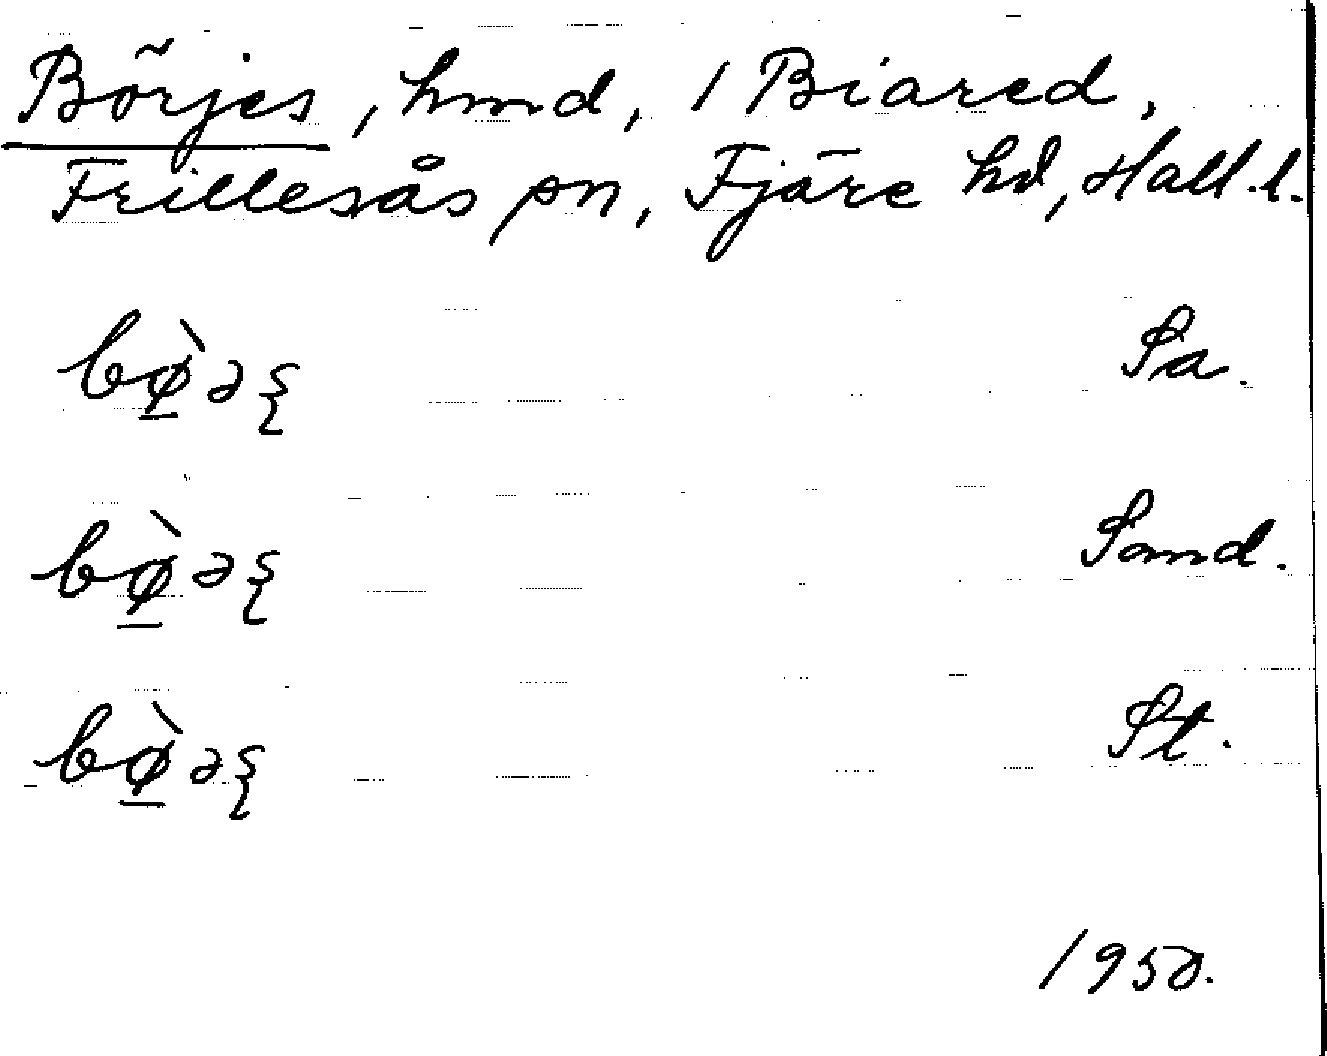 Börjes, hmd, 1 Biared,
Frillesås sn, Fjäre hd, Hall.l.
bø̠̀əʂ Sa.
bø̠̀əʂ Sand.
bø̠̀əʂ St.
1950.